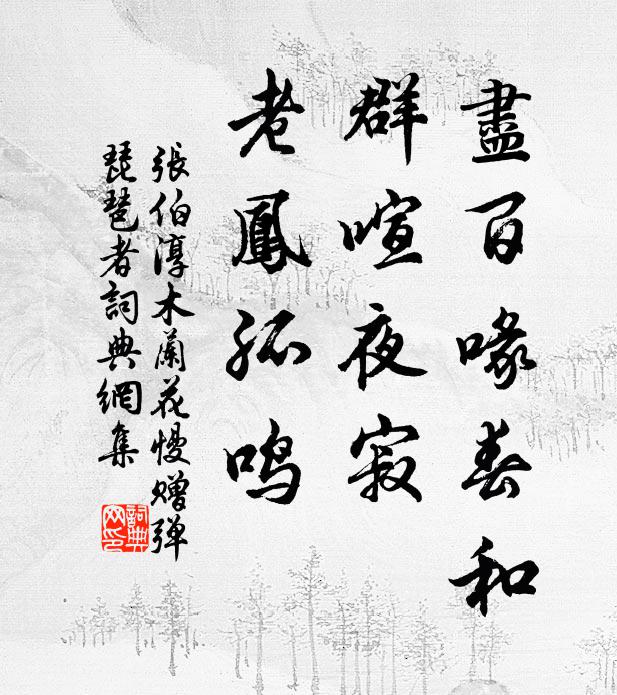 盡百喙春和
群喧夜寂
老鳳孤鸣
張伯淳木蘭花慢赠弹
琵琶者詞典網集
詞典网印